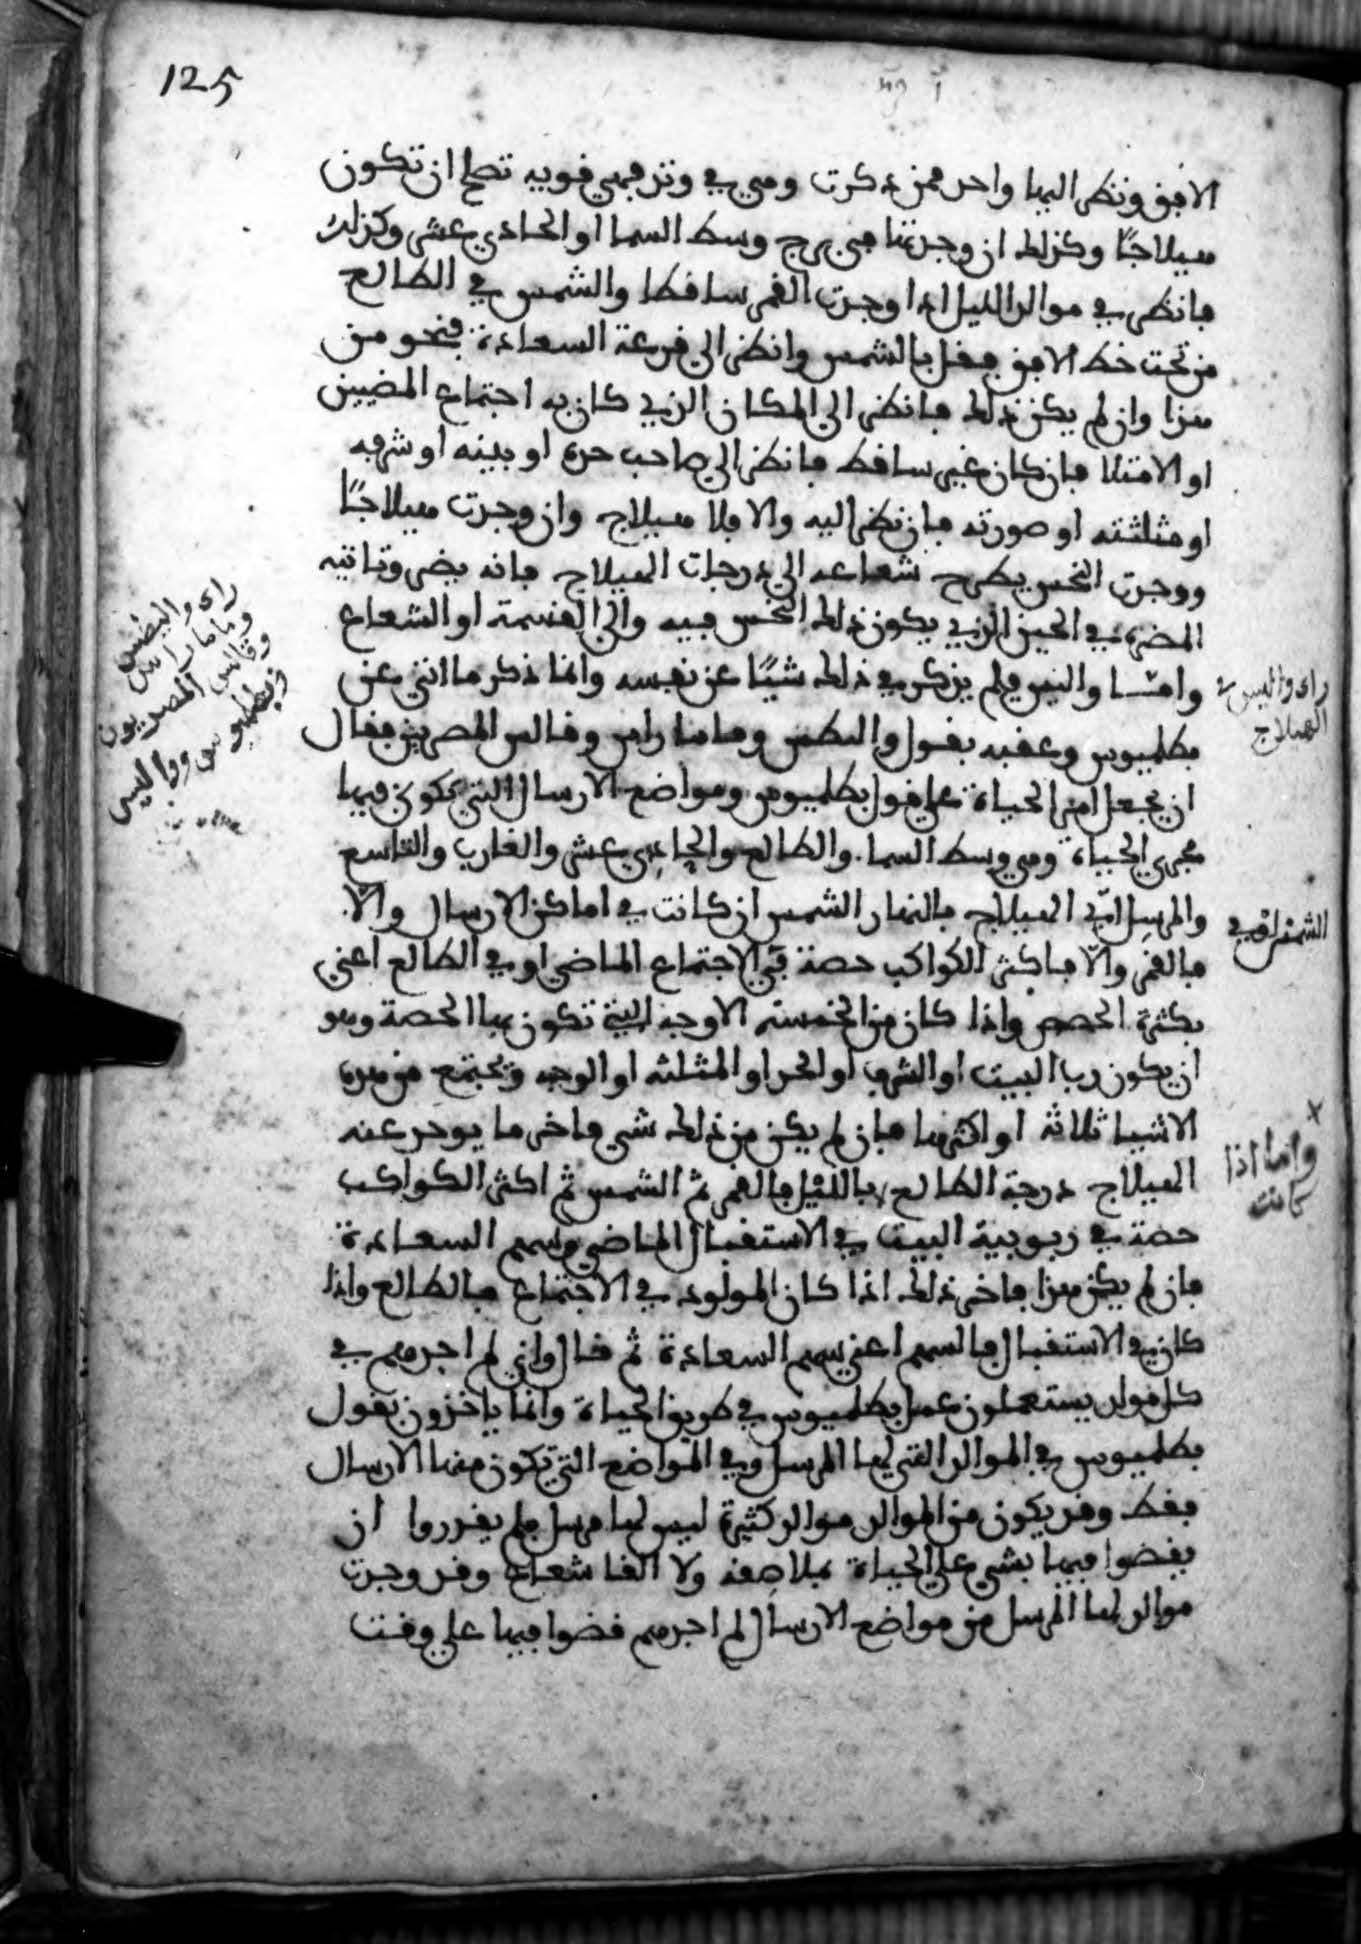 125
الافق ونظر اليها واحد ممن ذكرت وهي في وتد فهي قوية تصلح ان تكون
هيلاجًا وكذلك ان وجدتها في برج وسط السما او الحادي عشر وكذلك
فانظر في موالد الليل اذا وجدت القمر ساقطا والشمس في الطالع
من تحت خط الافق فقل بالشمس وانظر الى قرعة السعادة فنحو من
هذا وان لم يكن ذلك فانظر الى المكان الذي كان به اجتماع المضيين
او الامتلا فان كان غير ساقط فانظر الى صاحب حده او بيته او شرفه
او مثلثته او صورته فان نظر اليه والا فلا هيلاج وان وجدت هيلاجًا
ووجدت النحس يطرح شعاعه الى درجات الهيلاج فانه يضر وتاتيه
المضرة في الحين الذي يكون ذلك النحس فيه والى القسمة او الشعاع
وامّا واليس فلم يذكر في ذلك شيًا عن نفسه وانما ذكر ما انتزعن
بطلميوس وعقبه بقول والنطس وماماراس وفالس المصريين فقال
ان نجعل امر الحياة على قول بطلميوس ومواضع الارسال التي تكون فيها
مجرى الحياة وهي وسط السما والطالع والحادي عشر والغارب والتاسع
والمرسل اي الهيلاج بالنهار الشمس ان كانت في اماكن الارسال والّا
فبالقمر والّا فباكثر الكواكب حصة في الاجتماع الماضي او في الطالع اعني
بكثرة الحصص واذا كان من الخمسة الاوجه التي تكون بها الحصة وهو
ان يكون رب البيت او الشرف او الحد او المثلثه او الوجه وتجتمع من هذه
الاشيا ثلاثة او اكثرها فان لم يكن من ذلك شي فاخر ما يوخذ عنه
الهيلاج درجة الطالع بالليل فالقمر ثم الشمس ثم اكثر الكواكب
حصة في ربوبية البيت في الاستقبال الماضي وسهم السعادة
فان لم يكن هذا فاخر ذلك اذا كان المولود في الاجتماع فبالطالع واذا
كان في الاستقبال فبالسهم اعني سهم السعادة ثم قال واني لم اجدهم في
كل مولد يستعملون عمل بطلميوس في طريق الحياة وانما ياخذون بقول
بطلميوس في الموالد التي لها المرسل وفي المواضع التي تكون منها الارسال
فقط وقد يكون من الموالد موالد كثيرة ليس لها مرسل فلم يقدروا ان
يقضوا فيها بشي على الحياة بملاصقة ولا القا شعاع وقد وجدت
موالد لها المرسل من مواضع الارسال لم اجدهم قضوا فيها على وقت
راى واليس في
الهيلاج
الشمس
× واما اذا
كانت
راى والنطس
وماماراس
وفالس المصريون
وبطلميوس وواليس